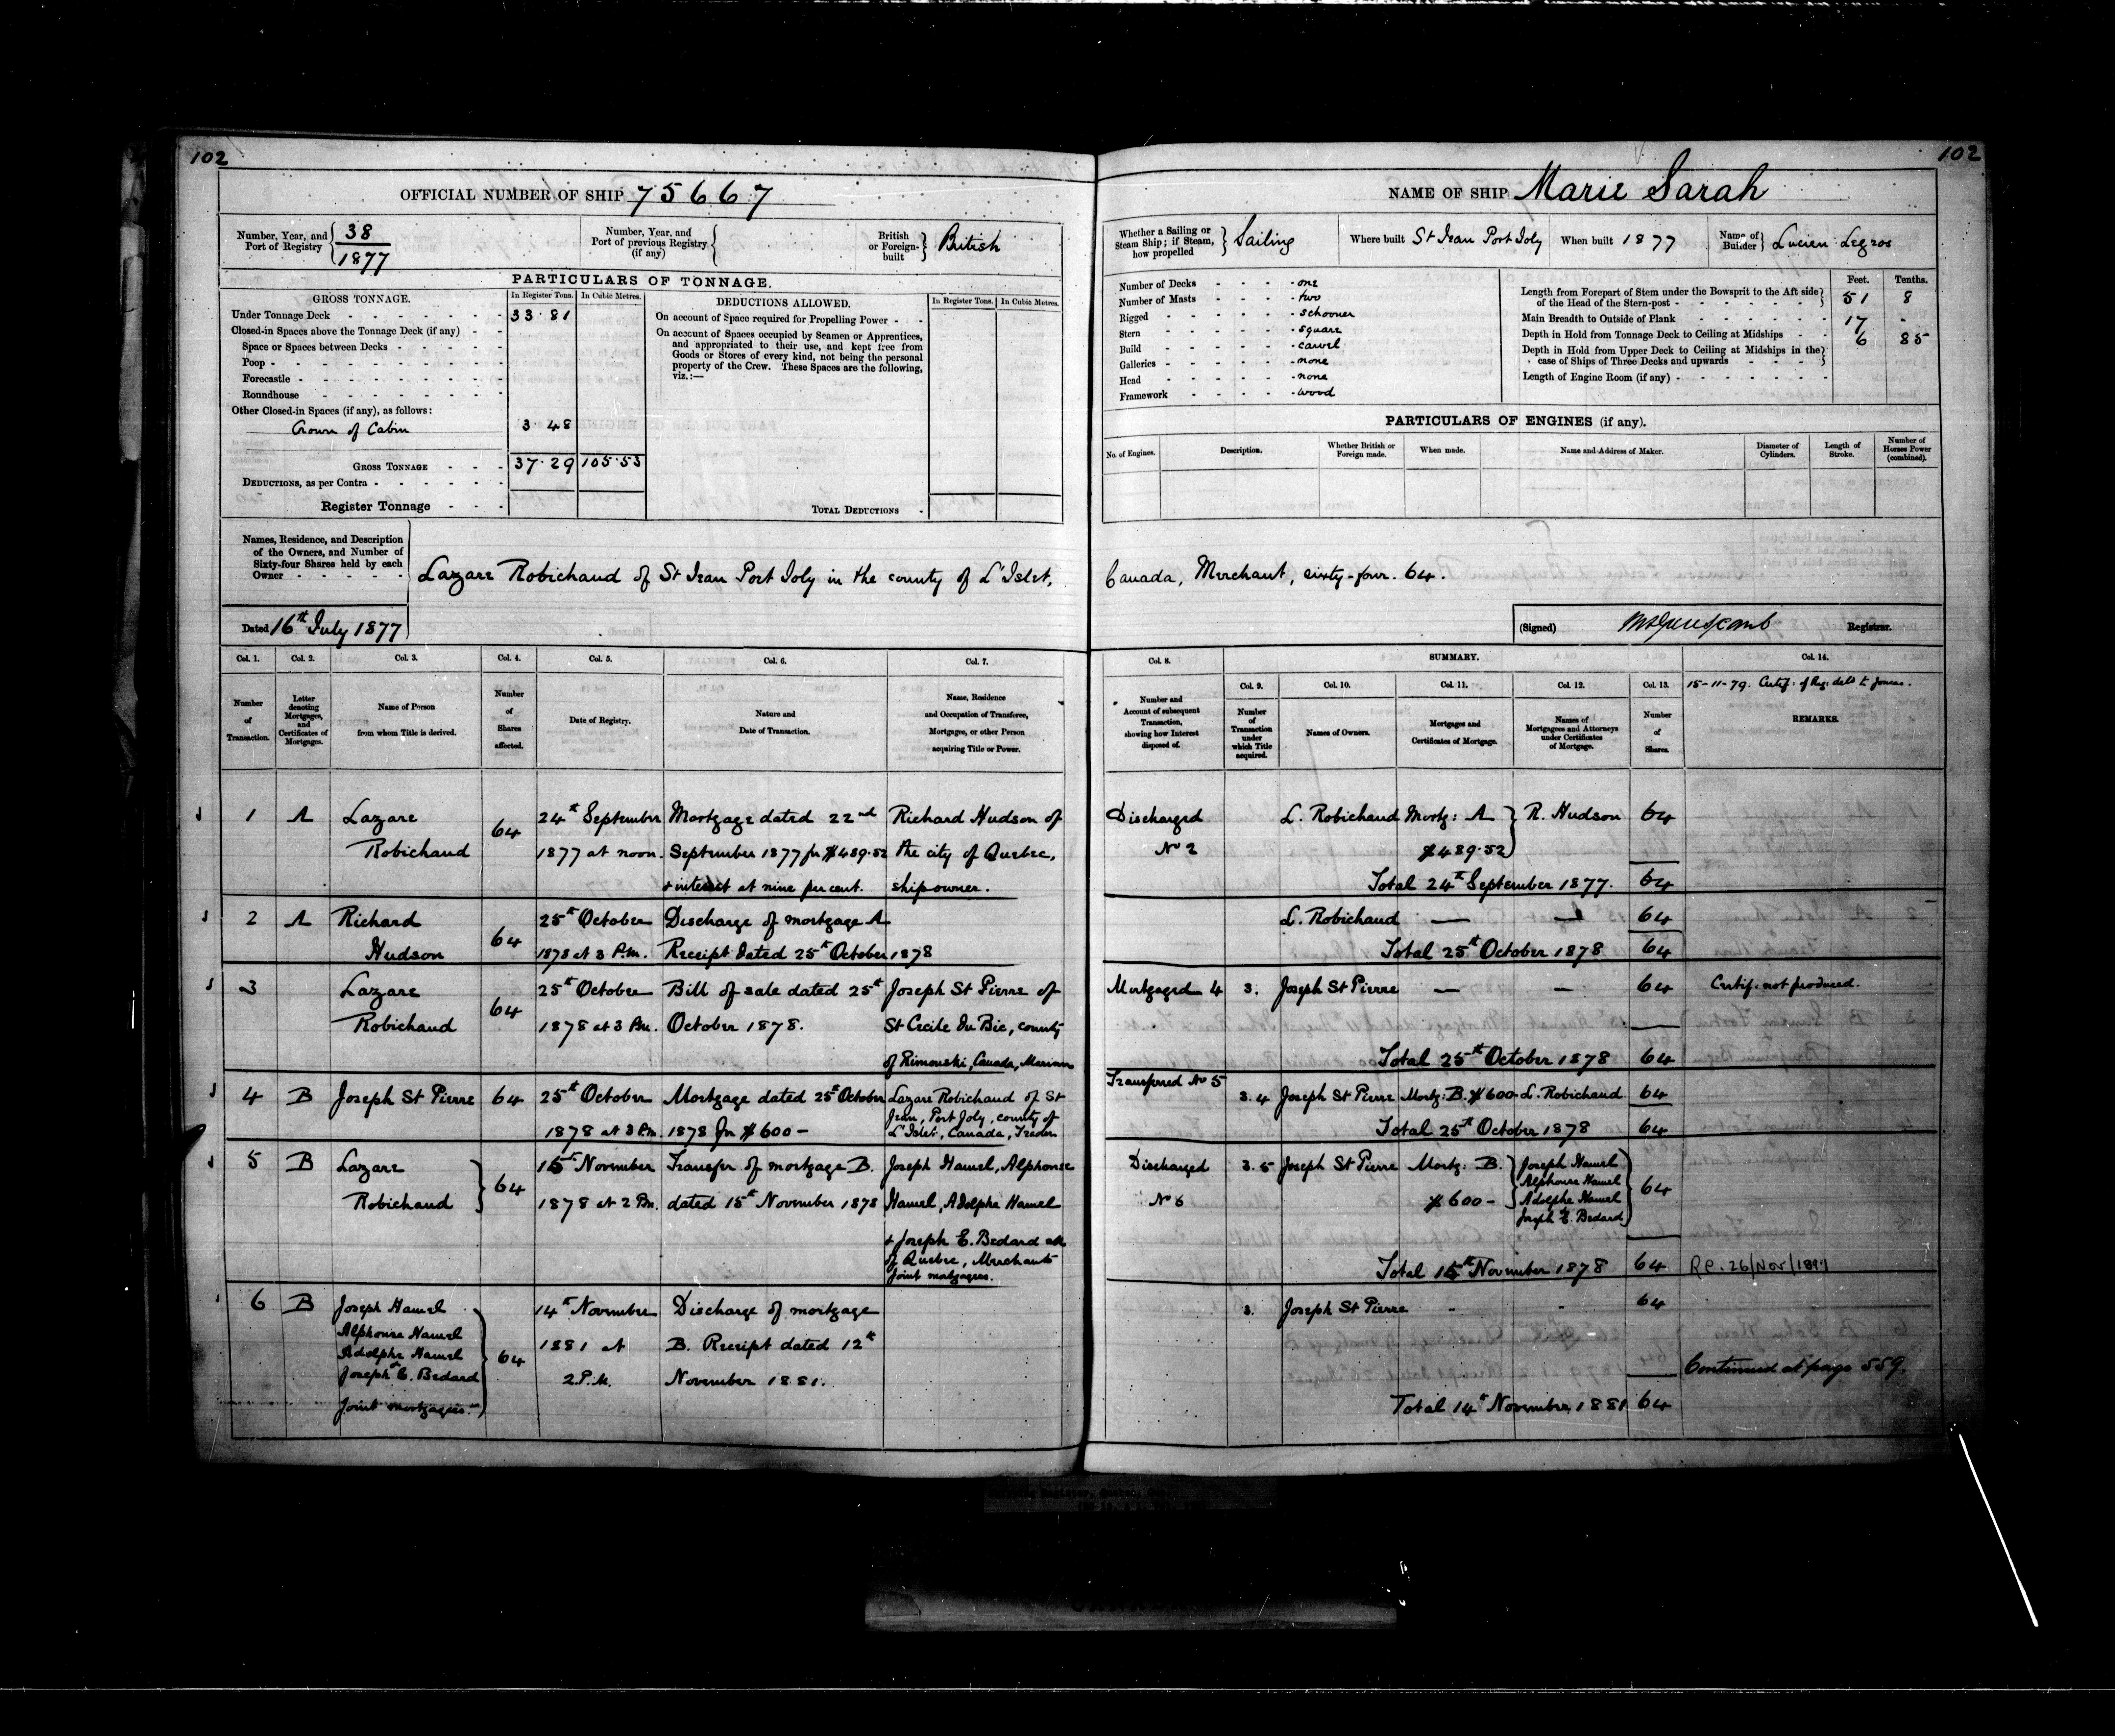 102
OFFICIAL NUMBER OF SHIP 75667
Number, Year, and Port of Registry 38 1877
Number, Year, and Port of previous Registry (if any)
British or Foreign-built British
PARTICULARS OF TONNAGE.
GROSS TONNAGE.
In Register Tons. In Cubic Metres.
Under Tonnage Deck 33.81
Closed-in Spaces above the Tonnage Deck (if any)
Space or Spaces between Decks
Poop
Forecastle
Roundhouse
Other Closed-in Spaces (if any), as follows:
Crown of Cabin 3.48
GROSS TONNAGE 37.29 105.53
DEDUCTIONS, as per Contra
Register Tonnage
DEDUCTIONS ALLOWED.
In Register Tons. In Cubic Metres.
On account of Space required for Propelling Power
On account of Spaces occupied by Seamen or Apprentices,
and appropriated to their use, and kept free from
Goods or Stores of every kind, not being the personal
property of the Crew. These Spaces are the following,
viz.:—
TOTAL DEDUCTIONS
102
NAME OF SHIP Marie Sarah
Whether a Sailing or Steam Ship; if Steam, how propelled Sailing
Where built St Jean Port Joly
When built 1877
Name of Builder Lucien Legros
Number of Decks one
Number of Masts two
Rigged schooner
Stern square
Build carvel
Galleries none
Head none
Framework wood
Feet. Tenths.
Length from Forepart of Stem under the Bowsprit to the Aft side
of the Head of the Stern-post 51 8
Main Breadth to Outside of Plank 17 -
Depth in Hold from Tonnage Deck to Ceiling at Midships 6 85
Depth in Hold from Upper Deck to Ceiling at Midships in the
case of Ships of Three Decks and upwards
Length of Engine Room (if any)
PARTICULARS OF ENGINES (if any).
No. of Engines. Description. Whether British or Foreign made. When made. Name and Address of Maker. Diameter of Cylinders. Length of Stroke. Number of Horses Power (combined).
Names, Residence, and Description
of the Owners, and Number of
Sixty-four Shares held by each
Owner
Lazare Robichaud of St Jean Port Joly in the county of L'Islet, Canada, Merchant, sixty-four. 64.
Dated 16th July 1877
(Signed) Registrar.
Col. 1. Number of Transaction.
Col. 2. Letter denoting Mortgages, and Certificates of Mortgages.
Col. 3. Name of Person from whom Title is derived.
Col. 4. Number of Shares affected.
Col. 5. Date of Registry.
Col. 6. Nature and Date of Transaction.
Col. 7. Name, Residence and Occupation of Transferee, Mortgagee, or other Person acquiring Title or Power.
Col. 8. Number and Account of subsequent Transaction, showing how Interest disposed of.
SUMMARY.
Col. 9. Number of Transaction under which Title acquired.
Col. 10. Names of Owners.
Col. 11. Mortgages and Certificates of Mortgage.
Col. 12. Names of Mortgagees and Attorneys under Certificates of Mortgage.
Col. 13. Number of Shares.
Col. 14.
15-11-79. Certif: of Reg: deld to
REMARKS.
1 A Lazare Robichaud 64
24th September 1877 at noon.
Mortgage dated 22nd September 1877 for $489.52 + interest at nine per cent.
Richard Hudson of the city of Quebec, shipowner.
Discharged No 2
L. Robichaud Mortg: A $489.52 R. Hudson 64
Total 24th September 1877. 64
2 A Richard Hudson 64
25th October 1878 at 3 P.M.
Discharge of mortgage A Receipt dated 25th October 1878
L. Robichaud — — 64
Total 25th October 1878 64
3 Lazare Robichaud 64
25th October 1878 at 3 P.M.
Bill of sale dated 25th October 1878.
Joseph St Pierre of St Cecile du Bic, county of Rimouski, Canada, Mariner
Mortgaged 4
3. Joseph St Pierre — — 64
Certif: not produced.
Total 25th October 1878 64
4 B Joseph St Pierre 64
25th October 1878 at 3 P.M.
Mortgage dated 25th October 1878 for $600 -
Lazare Robichaud of St Jean, Port Joly, county of L'Islet, Canada, Trader
Transferred No 5
3.4 Joseph St Pierre Mortg: B. $600- L. Robichaud 64
Total 25th October 1878 64
5 B Lazare Robichaud 64
15th November 1878 at 2 P.M.
Transfer of mortgage B. dated 15th November 1878
Joseph Hamel, Alphonse Hamel, Adolphe Hamel + Joseph E. Bedard all of Quebec, Merchants Joint mortgagees.
Discharged No 6
3.5 Joseph St Pierre Mortg: B. $600 - Joseph Hamel Alphonse Hamel Adolphe Hamel Joseph E. Bedard 64
Total 15th November 1878 64
6 B Joseph Hamel Alphonse Hamel Adolphe Hamel + Joseph E. Bedard Joint mortgagees. 64
14th November 1881 at 2.P.M.
Discharge of mortgage B. Receipt dated 12th November 1881.
3. Joseph St Pierre - - 64
Continued at page 559.
Total 14th November 1881 64